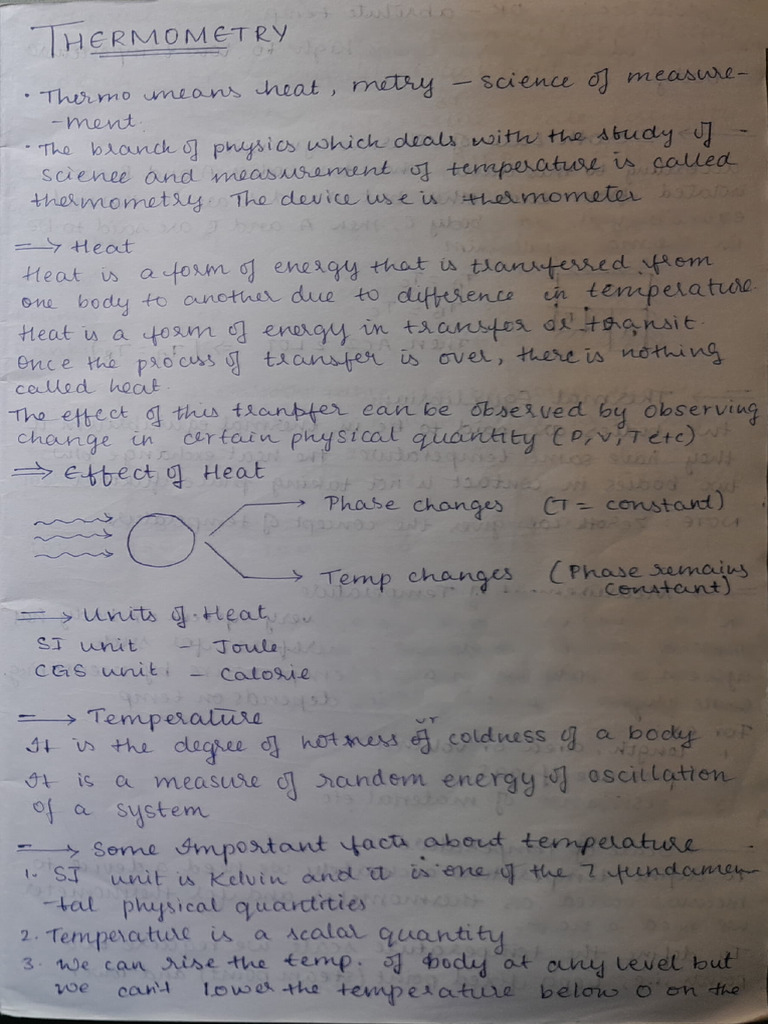 THERMOMETRY
· Thermo means heat, metry - science of measure-
-ment.
· The branch of physics which deals with the study of
science and measurement of temperature is called
thermometry. The device use is thermometer
=> Heat
Heat is a form of energy that is transferred from
one body to another due to difference in temperature.
Heat is a form of energy in transfer or transit.
Once the process of transfer is over, there is nothing
called heat.
The effect of this tranpfer can be observed by observing
change in certain physical quantity (P, V, T etc)
=> Effect of Heat
Phase changes (T = constant)
Temp changes (Phase remains
constant)
=> Units of Heat
SI unit - Joule
CGS unit - Calorie
=> Temperature
It is the degree of hotness or coldness of a body
It is a measure of random energy of oscillation
of a system
=> Some Important facts about temperature
1. SI unit is Kelvin and it is one of the 7 fundamen-
-tal physical quantities
2. Temperature is a scalar quantity
3. We can rise the temp. of body at any level but
we can't lower the temperature below 0 on the